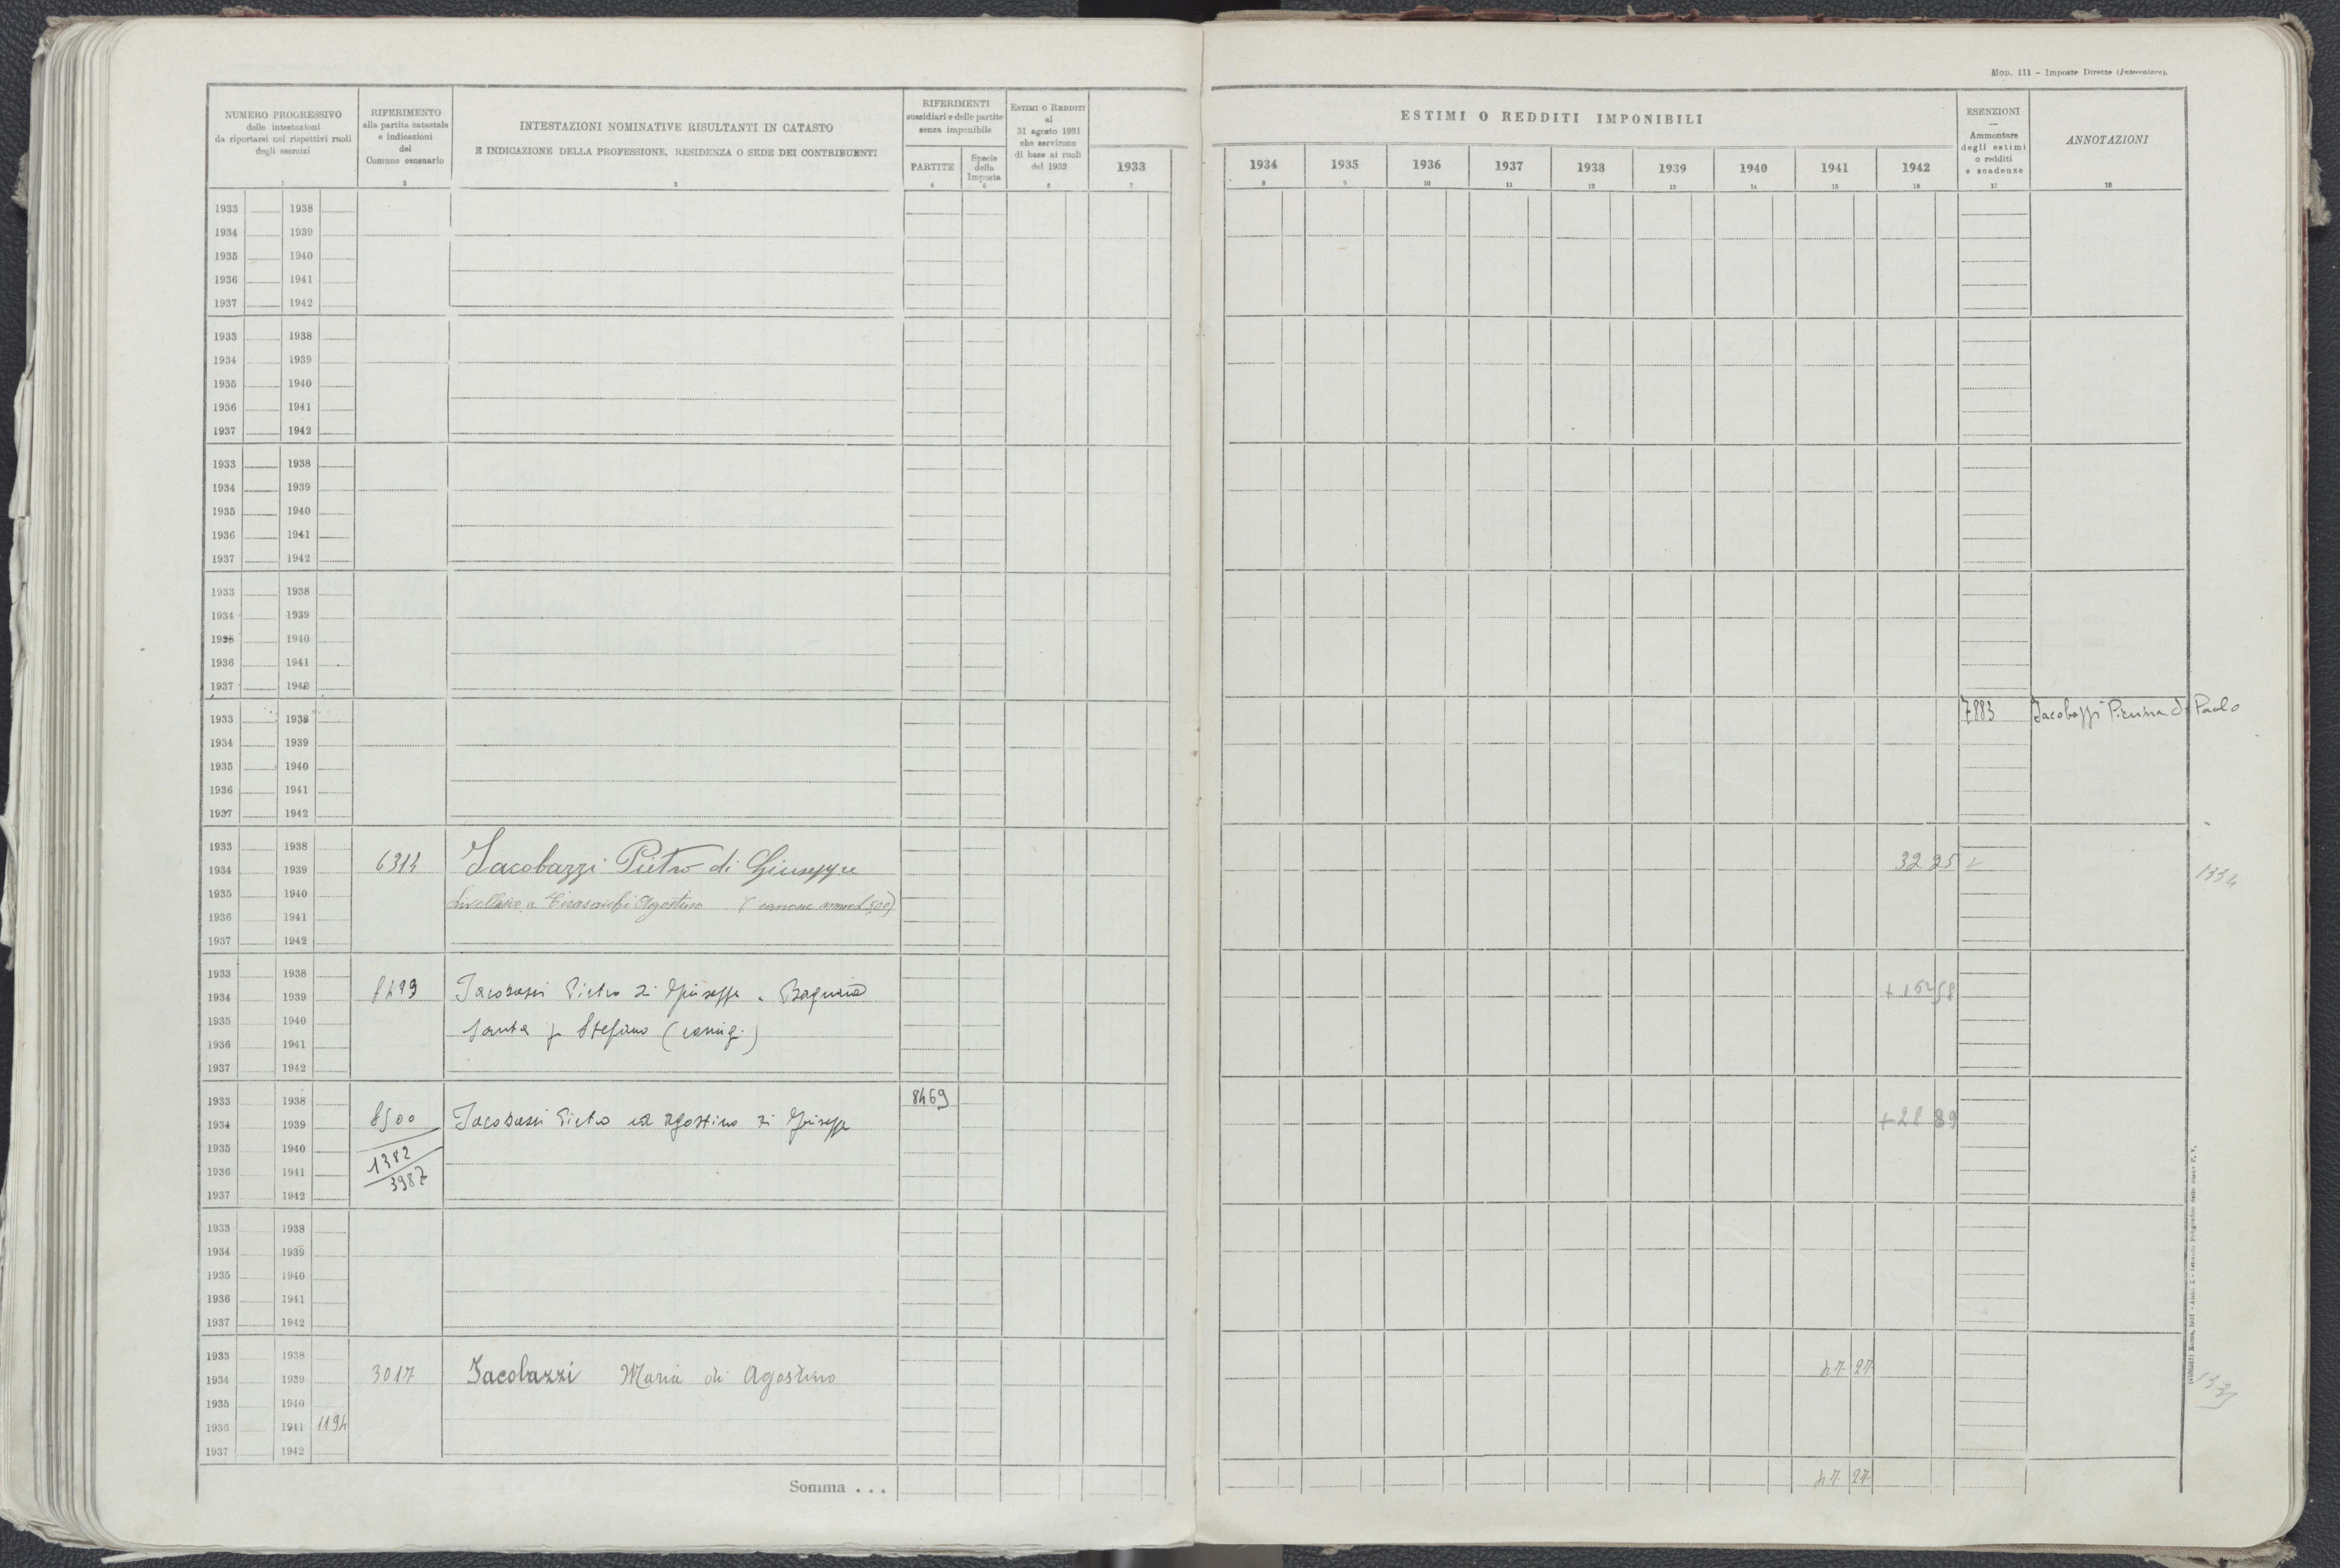 Mod. 111 - Imposte Dirette (Intercalare).
NUMERO PROGRESSIVO
delle intestazioni
da riportarsi nei rispettivi ruoli
degli esercizi
1
RIFERIMENTO
alla partita catastale
e indicazioni
del
Comune censuario
2
INTESTAZIONI NOMINATIVE RISULTANTI IN CATASTO
E INDICAZIONE DELLA PROFESSIONE, RESIDENZA O SEDE DEI CONTRIBUENTI
3
RIFERIMENTI
sussidiari e delle partite
senza imponibile
PARTITE
4
Specie
della
Imposta
5
ESTIMI O REDDITI
al
31 agosto 1931
che servirono
di base ai ruoli
del 1932
6
1933
7
ESTIMI O REDDITI IMPONIBILI
1934 1935 1936 1937 1938 1939 1940 1941 1942
8 9 10 11 12 13 14 15 16
ESENZIONI
—
Ammontare
degli estimi
o redditi
e scadenze
17
ANNOTAZIONI
18
1933 1938
1934 1939
1935 1940
1936 1941
1937 1942
1933 1938
1934 1939
1935 1940
1936 1941
1937 1942
1933 1938
1934 1939
1935 1940
1936 1941
1937 1942
1933 1938
1934 1939
1935 1940
1936 1941
1937 1942
1933 1938 7883 Jacobazzi Pierina di Paolo
1934 1939
1935 1940
1936 1941
1937 1942
1933 1938
1934 1939 6314 Jacobazzi Pietro di Giuseppe 32 25 1334
1935 1940
livellario a Agostino (canone annuo
1936 1941
1937 1942
1933 1938
1934 1939 Jacobazzi Pietro di Giuseppe
1935 1940 Santa fu Stefano (coniug.)
1936 1941
1937 1942
1933 1938 8469
1934 1939 8500 Jacobazzi Pietro ed Agostino di Giuseppe + 28 89
1935 1940 1382
1936 1941 3987
1937 1942
1933 1938
1934 1939
1935 1940
1936 1941
1937 1942
1933 1938
1934 1939 3017 Jacobazzi Maria di Agostino 47 27
1935 1940
1936 1941 1194
1937 1942
Somma . . . 47 27